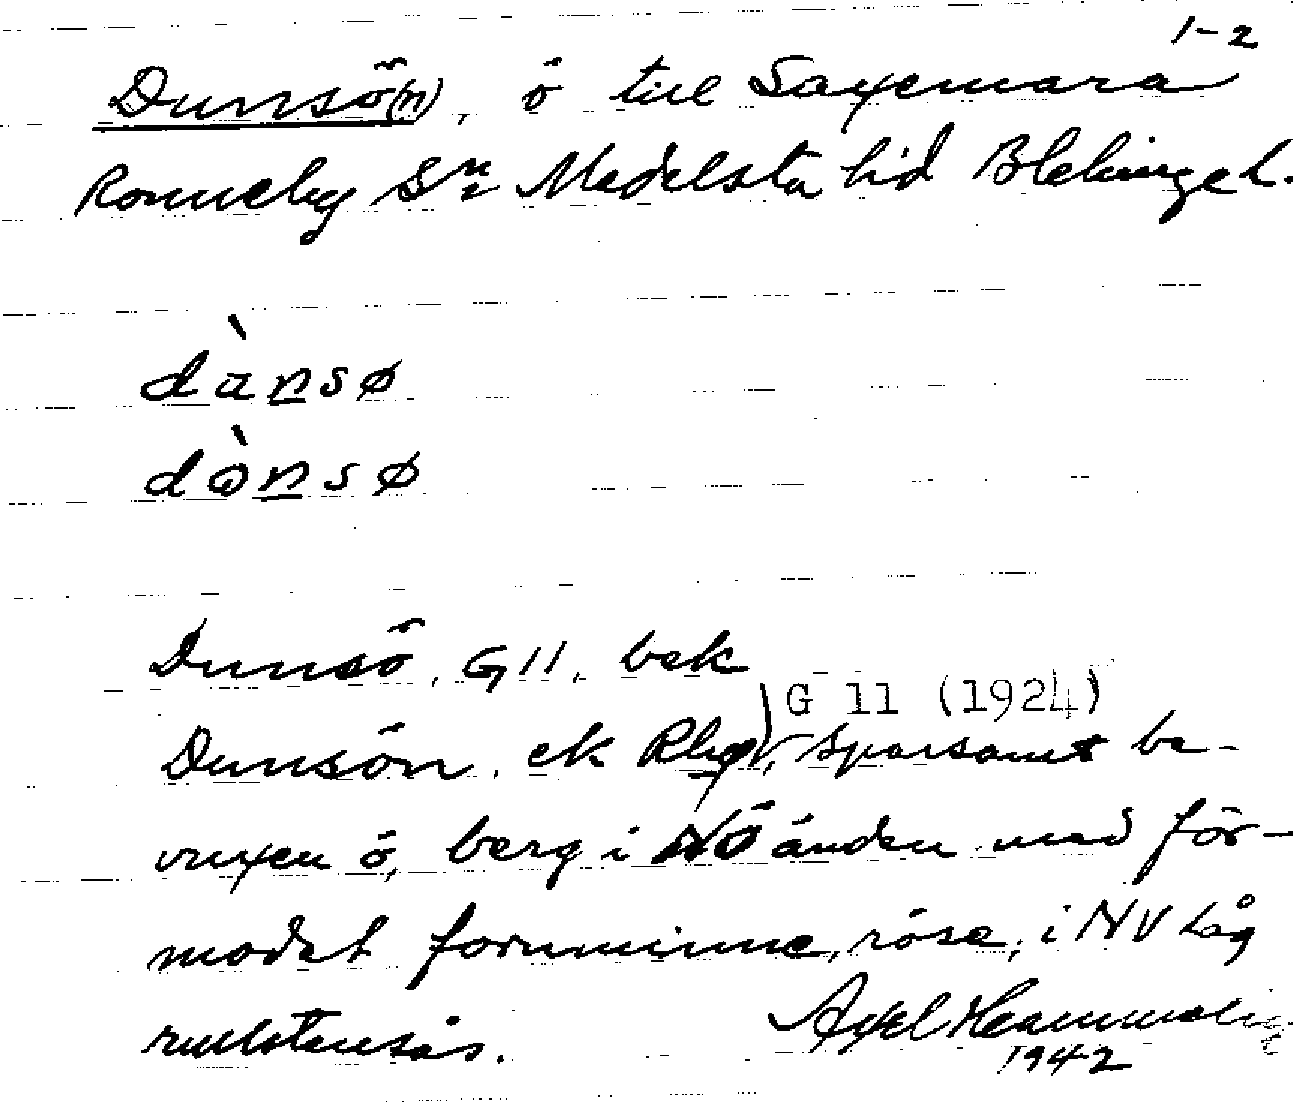 1-2
Dunsö(n), ö till Saxemara
Ronneby Sn Medelsta hd Blekinge l.
dànsø
dònsø
Dunsö, G11, bek
G 11 (1924)
Dunsön, ek Rbg, sparsamt be-
vuxen ö, berg i NÖ änden med för-
modat fornminne, röse, i NV låg
rullstensås.
Axel Hammolin
1942